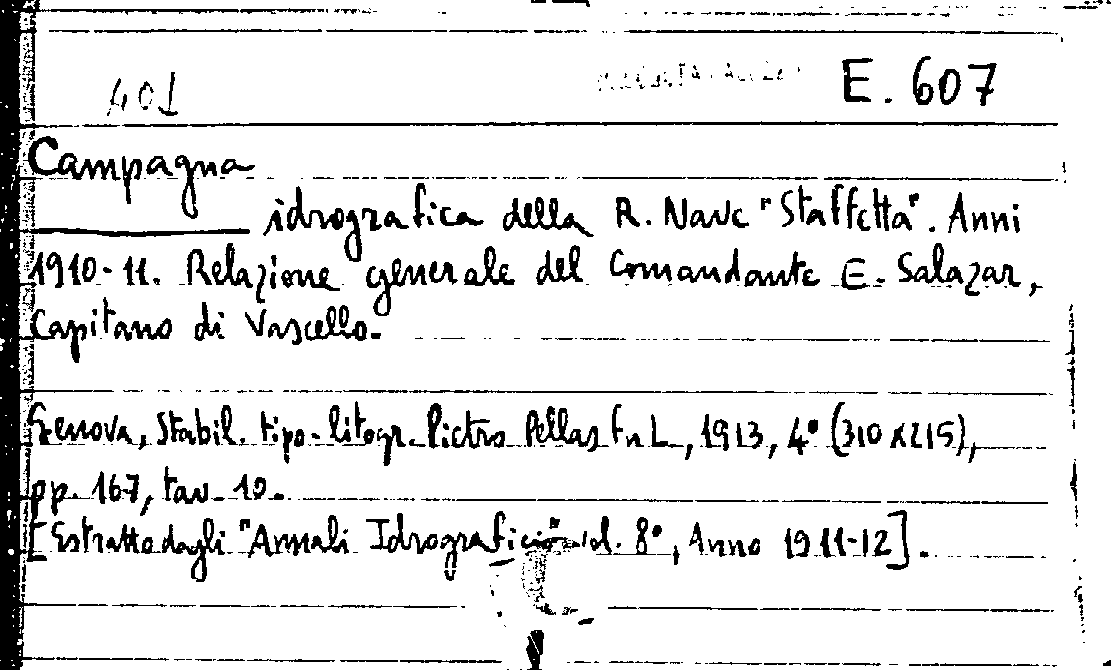 401 E. 607
Campagna
idrografica della R. Nave "Staffetta". Anni
1910-11. Relazione generale del Comandante E. Salazar,
Capitano di Vascello.
Genova, Stabil. tipo-litogr. Pietro Pellas fu L., 1913, 4° (310x215),
pp. 167, tav. 10.
[Estratto dagli "Annali Idrografici" vol. 8°, Anno 1911-12].